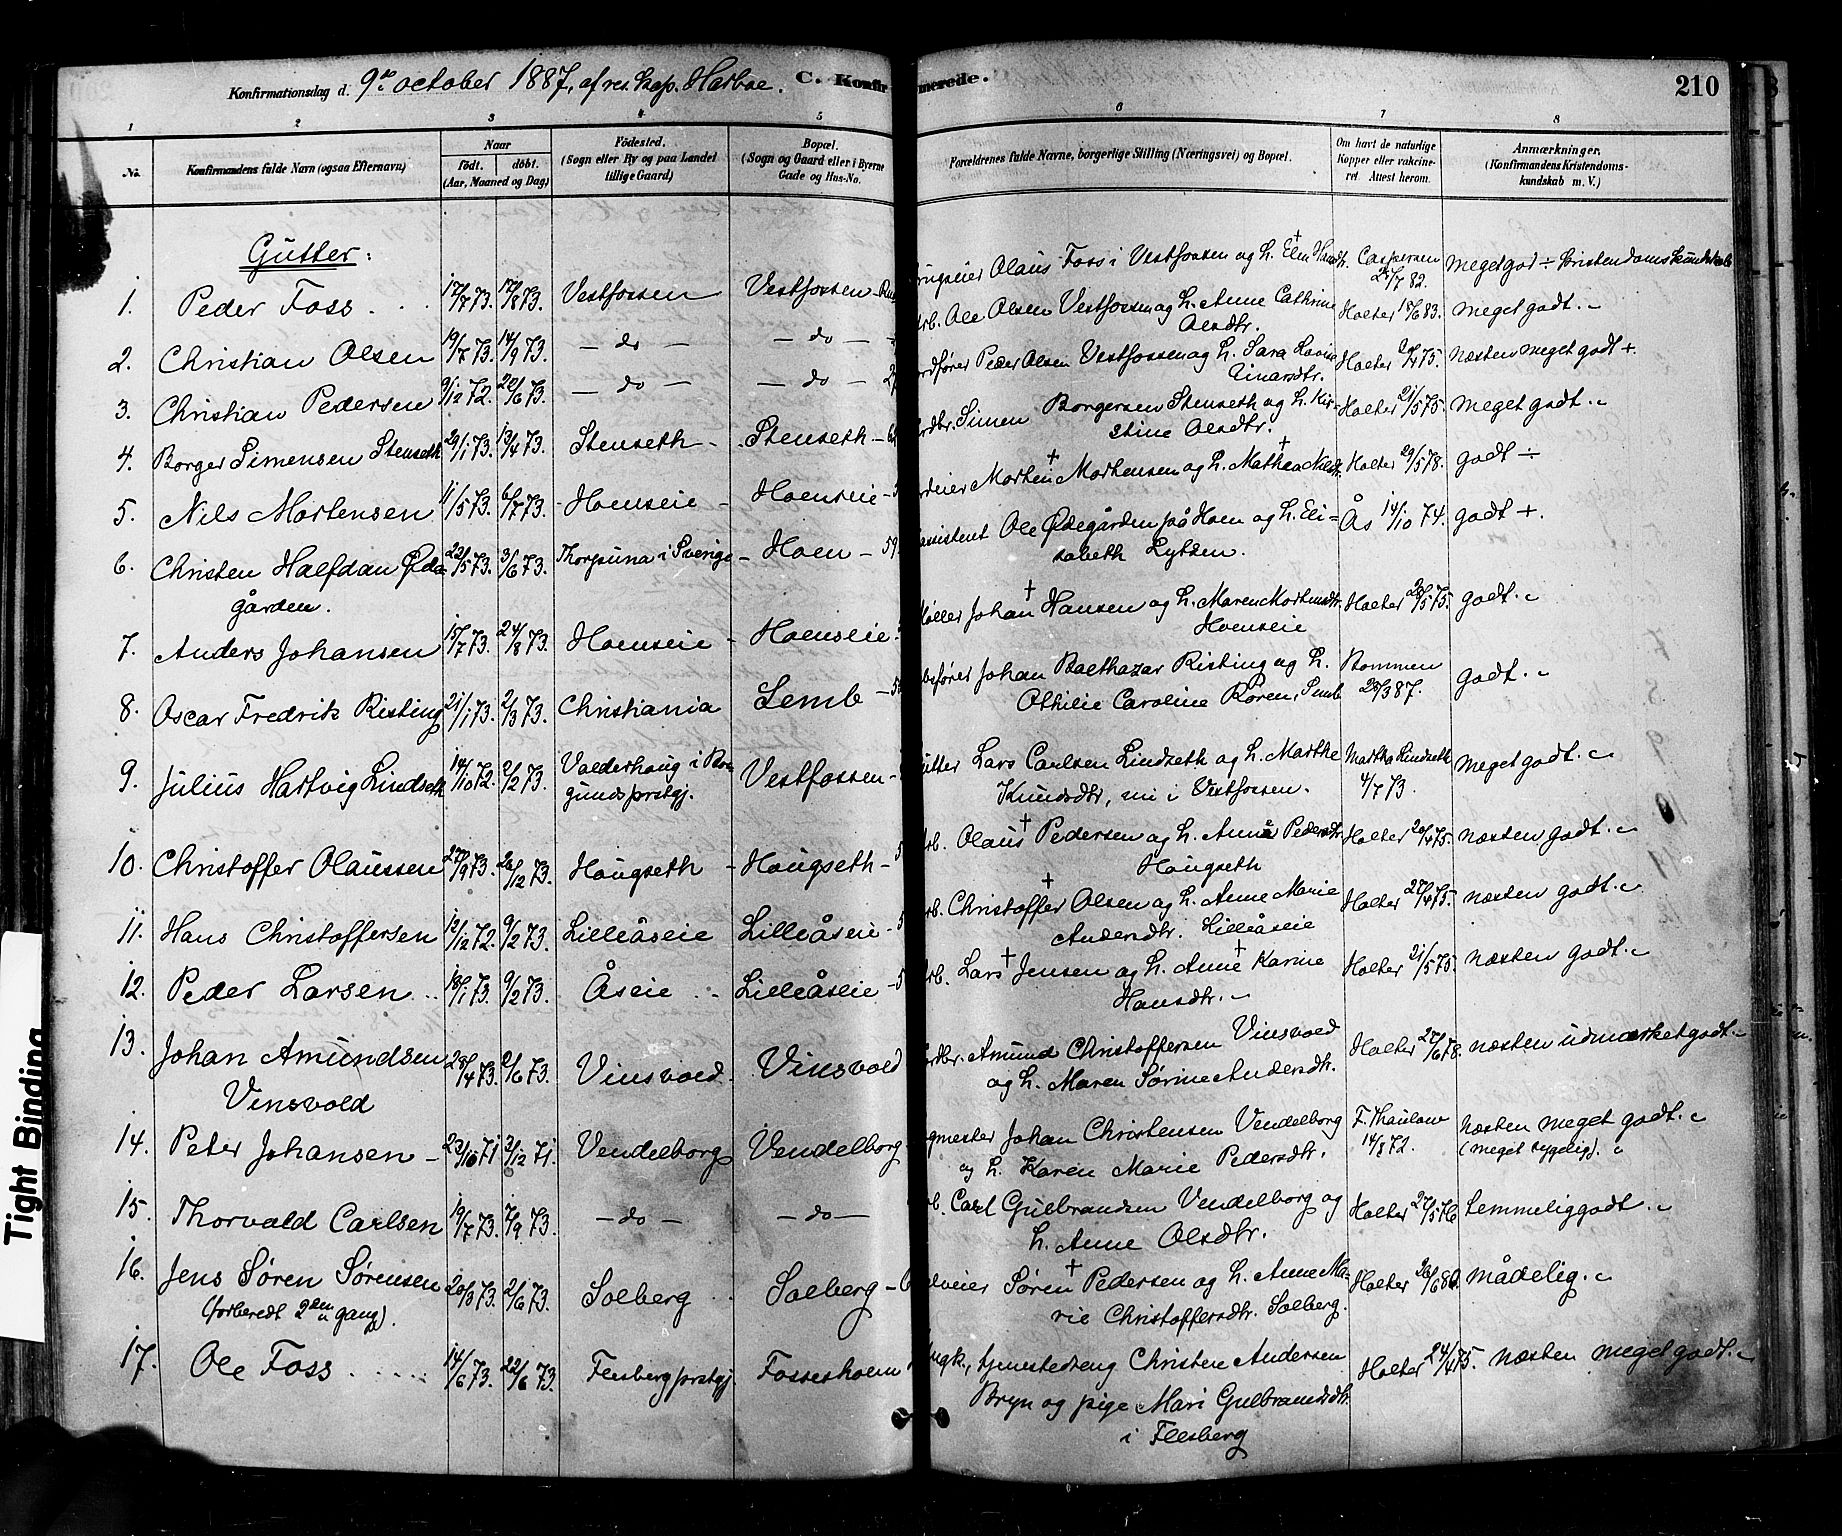 Konfirmationsdag d. 9de october 1887, af res. kap. Harboe. C. Konfirmerede. 210
1 2 3 4 5 6 7 8
No. Konfirmandens fulde Navn (ogsaa Efternavn) Naar födt. döbt. (Aar, Maaned og Dag) Födested. (Sogn eller By og paa Landet tillige Gaard) Bopæl. (Sogn og Gaard eller i Byerne Gade og Hus-No. Forældrenes fulde Navne, borgerlige Stilling (Næringsvei) og Bopæl. Om havt de naturlige Kopper eller vakcineret. Attest herom. Anmærkninger. (Konfirmandens Kristendomskundskab m. V.)
Gutter:
1. Peder Foss 17/7 73. 17/8 73. Vestfossen Vestfossen Olaus Foss i Vestfossen og h. Casperson 82. meget god ÷ kristendomskundskab
2. Christian Olsen 19/7 73. 14/9 73. — do — — do — Ole Olsen Vestfossen og h. Anne Cathrine
Olsdtr. Holter 18/6 83. meget godt. ~
3. Christian Pedersen 9/12 72. 22/6 73. — do — — do — Peder Olsen Vestfossen og h. Sara Lovise
Einarsdtr. Holter 75. næsten meget godt +.
4. Borger Simensen Stenseth 29/1 73. 13/4 73. Stenseth Stenseth Simen Borgersen Stenseth og h. Kirstine
Olsdtr. Holter 21/5 75. meget godt. ~
5. Nils Mortensen 11/5 73. 6/7 73. Hoenseie Hoenseie Morten † Mortensen og h. Mathea † Nilsdtr. Holter 29/5 78. godt ÷
6. Christen Halfdan Ødegården.
23/5 73. 3/6 73. Thorpuna i Sverige Hoen - 59 Ole Ødegården på Hoen og h. Elisabeth
Lytzen. Ås 14/10 74. godt +.
7. Anders Johansen 15/7 73. 24/8 73. Hoenseie Hoenseie Johan † Hansen og h. Maren Mortensdtr.
Hoenseie Holter 5 75. godt. ~
8. Oscar Fredrik Risting 21/1 73. 2/3 73. Christiania Semb Johan Balthazar Risting og h.
Othilie Caroline Boren, Semb Bommen 28/3 87. godt. ~
9. Julius Hartvig Lindseth 14/10 72. 2/2 73. Valderhoug i Borgunds prstgj. Vestfossen Lars Carlsen Lindseth og h. Marthe
Knudsdtr, nu i Vestfossen. Martha Lindseth 4/7 73. meget godt. ~
10. Christoffer Olaussen 27/9 73. 26/12 73. Hougseth Hougseth Olaus † Pedersen og h. Anne Pedersdtr
Hougseth Holter 20/4 75. næsten godt. ~
11. Hans Christoffersen 12/12 72. 9/2 73. Lilleåseie Lilleåseie Christoffer † Olsen og h. Anne Marie
Andersdtr. Lilleåseie Holter 27/4 75. næsten godt. ~
12. Peder Larsen 18/1 73. 9/2 73. Åseie Lilleåseie Lars † Jensen og h. Anne † Karine
Hansdtr. ~ Holter 21/5 75. næsten godt. ~
13. Johan Amundsen
Vinsvold 28/4 73. 2/6 73. Vinsvold Vinsvold Amund Christoffersen Vinsvold
og h. Maren Sørine Andersdtr. Holter 27/6 78. næsten udmærket godt. ~
14. Peter Johansen 23/10 71 3/12 71. Vendelborg Vendelborg Johan Christensen Vendelborg
og h. Karen Marie Pedersdtr. F. Thaulow 14/8 72. næsten meget godt. ~
(meget sygelig). ~
15. Thorvald Carlsen 19/7 73. 7/9 73. — do — — do — Carl Gulbrandsen Vendelborg og
h. Anne Olsdtr. Holter 27/5 76 temmelig godt. ~
16. Jens Søren Sørensen
(forberedt 2den gang). 20/3 73. 2/6 73. Solberg Solberg Søren † Pedersen og h. Anne Marie
Christoffersdtr. Solberg. Holter 26/6 80. mådelig. ~
17. Ole Foss 14/6 73. 22/6 73. Flesberg prstgj. Fossesholm tjenestedreng Christen Andersen
Bryn og pige Mari Gulbrandsdtr.
i Flesberg Holter 24/4 75. næsten meget godt. ~
Tight Binding